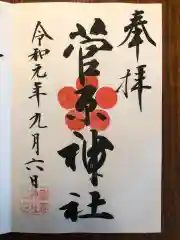 奉拝
菅原神社
令和元年九月六日